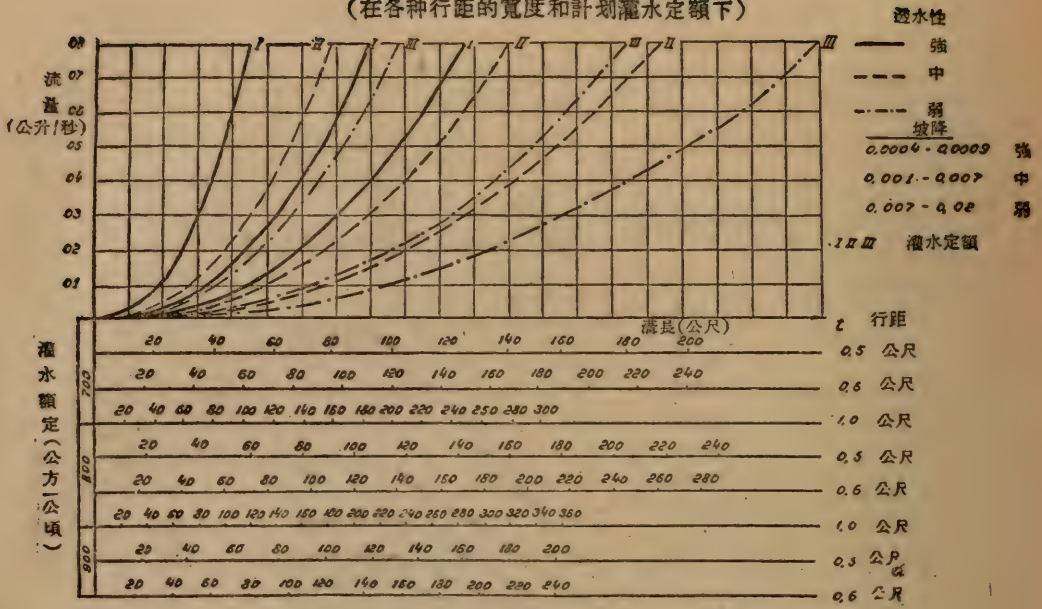 (在各种行距的寬度和計划灌水定額下)
透水性
強
中
弱
坡降
0,0004-0,0009 強
0,001-0,007 中
0,007-0,02 弱
I II III 灌水定額
流量(公升/秒)
I II I III I II III II III
08
07
06
05
04
03
02
01
溝長(公尺) t 行距
灌水額定(公方一公頃)
700
20 40 60 80 100 120 140 160 180 200 0,5 公尺
20 40 60 80 100 120 140 160 180 200 220 240 0,6 公尺
20 40 60 80 100 120 140 160 180 200 220 240 250 280 300 1,0 公尺
800
20 40 60 80 100 120 140 160 180 200 220 240 0,5 公尺
20 40 60 80 100 120 140 160 180 200 220 240 260 280 0,6 公尺
20 40 60 80 100 120 140 160 180 200 220 240 260 280 300 320 340 360 1,0 公尺
900
20 40 60 80 100 120 140 160 180 200 0,5 公尺
20 40 60 80 100 120 140 160 180 200 220 240 0,6 公尺